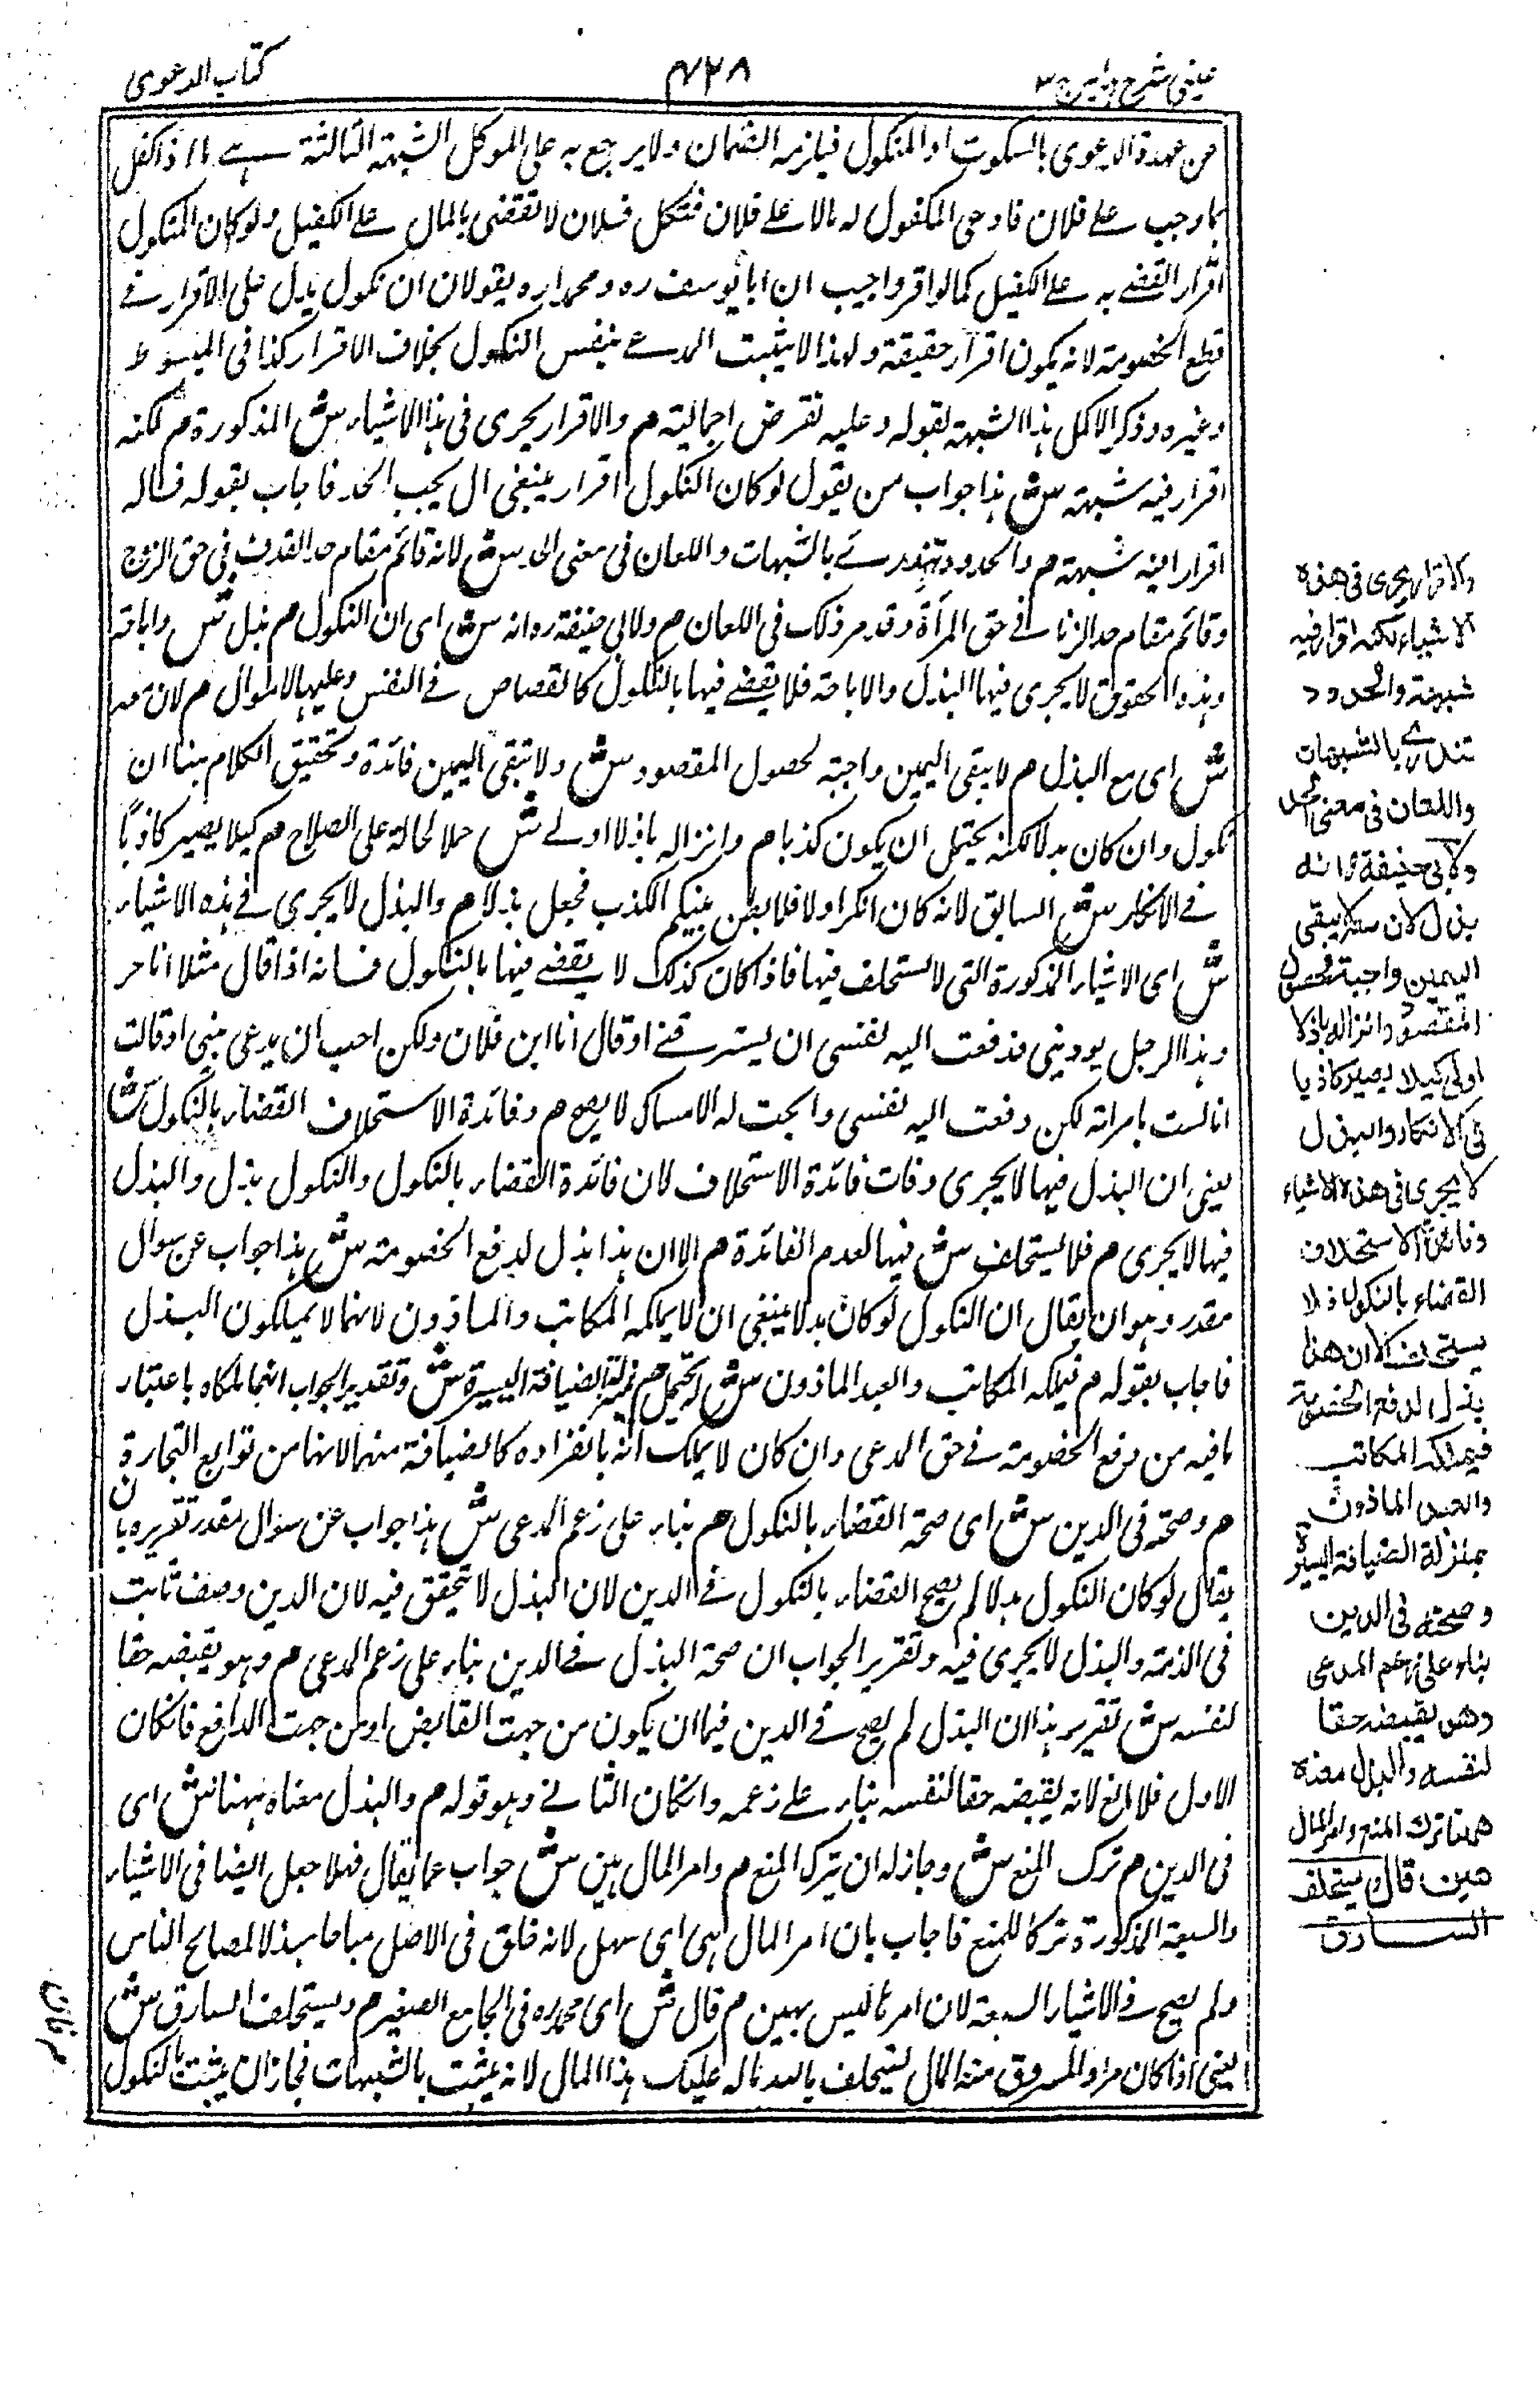 عینی شرح ہدایہ ج ٣
٤٢٨
کتاب الدعوی
عن عهدة الدعوى بالسكوت او المنكول فيلزمه الضمان ولا يرجع به على الموكل الشبهة الثالثة هي اذا كفل
بما وجب على فلان فادعى المكفول له مالا على فلان فنكل فلان لا تقضى بالمال على الكفيل ولو كان النكول
اقرار القضى به على الكفيل كما لو اقر واجيب ان ابا يوسف ره و محمدا ره يقولان ان نكول يدل على الاقرار فى
قطع الخصومة لانه يكون اقرار حقيقة ولهذا لا يثبت المدعى بنفس النكول بخلاف الاقرار كذا فى المبسوط
وغيره وذكر الاكمل هذا الشبهة بقوله وعليه نقرض اجمالية م والاقرار يجرى فى هذا الاشياء ش المذكورة م لكنه
اقرار فيه شبهة ش هذا جواب من يقول لو كان النكول اقرار ينبغى ان يجب الحد فاجاب بقوله فساله
اقرار افيه شبهة م والحدود تندرئ بالشبهات واللعان فى معنى الحد ش لانه قائم مقام حد القذف فى حق الزوج
وقائم مقام حد الزنا فى حق المرأة وقد مر ذلك فى اللعان م ولابى حنيفة ره انه ش اى ان النكول م بذل ش واباحة
وهذه الحقوق لا يجرى فيها البذل والاباحة فلا يقضى فيها بالنكول كالقصاص فى النفس وعليها الاموال م لان معه
ش اى مع البذل م لا يبقى اليمين واجبة لحصول المقصود ش ولا تبقى اليمين فائدة وتحقيق الكلام هنا ان
نكول وان كان بدلا لكنه يحتمل ان يكون كذبا م وانزاله باذلا اولى ش حملا لحاله على الصلاح م كيلا يصير كاذبا
فى الانكار ش السابق لانه كان انكر اولا فلا يظن بينكم الكذب فجعل بذلا م والبذل لا يجرى فى هذه الاشياء
ش اى الاشياء المذكورة التى لا يستحلف فيها فاذا كان كذلك لا يقضى فيها بالنكول فانه اذا قال مثلا انا حر
وهذا الرجل يوذينى فدفعت اليه نفسى ان يسترقنى او قال انا ابن فلان ولكن احب ان يدعى بنى او قالت
انا لست بامراته لكن دفعت اليه نفسى وابحت له الامساك لا يصح م وفائدة الاستحلاف القضاء بالنكول ش
يعنى ان البذل فيها لا يجرى وفات فائدة الاستحلاف لان فائدة القضاء بالنكول والنكول بذل والبذل
فيها لا يجرى م فلا يستحلف ش فيها لعدم الفائدة م الا ان هذا بذل لدفع الخصومة ش هذا جواب عن سوال
مقدر وهو ان يقال ان النكول لو كان بدلا ينبغى ان لا يملكه المكاتب والماذون لانهما لا يملكون البذل
فاجاب بقوله م فيملكه المكاتب والعبد الماذون ش م بمنزلة الضيافة اليسيرة ش وتقدير الجواب انهما ملكاه باعتبار
ما فيه من دفع الخصومة فى حق المدعى وان كان لا يملك انه بانفراده كالضيافة منهما لانها من توابع التجارة
م وصحته فى الدين ش اى صحة القضاء بالنكول م بناء على زعم المدعى ش هذا جواب عن سوال مقدر تقريره بان
يقال لو كان النكول بدلا لم يصح القضاء بالنكول فى الدين لان البذل لا يتحقق فيه لان الدين وصف ثابت
فى الذمة والبذل لا يجرى فيه وتقرير الجواب ان صحة البذل فى الدين بناء على زعم المدعى م وهو يقبضه حقا
لنفسه ش تقرير هذا ان البذل لم يصح فى الدين فيما ان يكون من جهت القابض او من جهت الدافع فان كان
الاول فلا مانع لانه يقبضه حقا لنفسه بناء على زعمه وان كان الثانى وهو قوله م والبذل معناه ههنا ش اى
فى الدين م ترك المنع ش وجاز له ان يترك المنع م وامر المال هين ش جواب عما يقال فهلا جعل ايضا فى الاشياء
والسبعة المذكورة تركا للمنع فاجاب بان امر المال هى اى سهل لانه خلق فى الاصل مباحا مبذلا لمصالح الناس
ولم يصح فى الاشياء السبعة لان امرها ليس بهين م قال ش اى محمد ره فى الجامع الصغير م ويستحلف السارق ش
يعنى اذا كان مراد المسروق منه المال يستحلف بالله ماله عليك هذا المال لانه يثبت بالشبهات فجاز ان يثبت بالنكول
والاقرار يجرى فى هذه
الاشياء لكنه اقرار فيه
شبهة والحدود
تندرئ بالشبهات
واللعان فى معنى الحد
ولابى حنيفة ره انه
بذل لان معه لا يبقى
اليمين واجبة لحصول
المقصود وانزاله باذلا
اولى كيلا يصير كاذبا
فى الانكار والبذل
لا يجرى فى هذه الاشياء
وفائدة الاستحلاف
القضاء بالنكول فلا
يستحلف الا ان هذا
بذل لدفع الخصومة
فيملكه المكاتب
والعبد الماذون
بمنزلة الضيافة اليسيرة
وصحته فى الدين
بناء على زعم المدعى
وهو يقبضه حقا
لنفسه والبذل معناه
ههنا ترك المنع وامر المال
هين قال ويستحلف
السارق